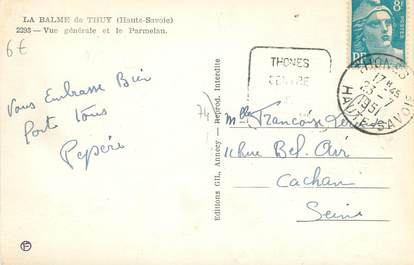 LA BALME de THUY (Haute-Savoie)
2293 — Vue générale et le Parmelan.
6€
Vous Embrasse Bien
Porte Vous
Pépère
74
Editions GIL, Annecy - Reprod. Interdite
8F
POSTES
RF
THONES
CENTRE
THONES
17H45
23-7
1951
HAUTE-SAVOIE
Melle Francoise
11 Rue Bel-Air
Cachan
Seine